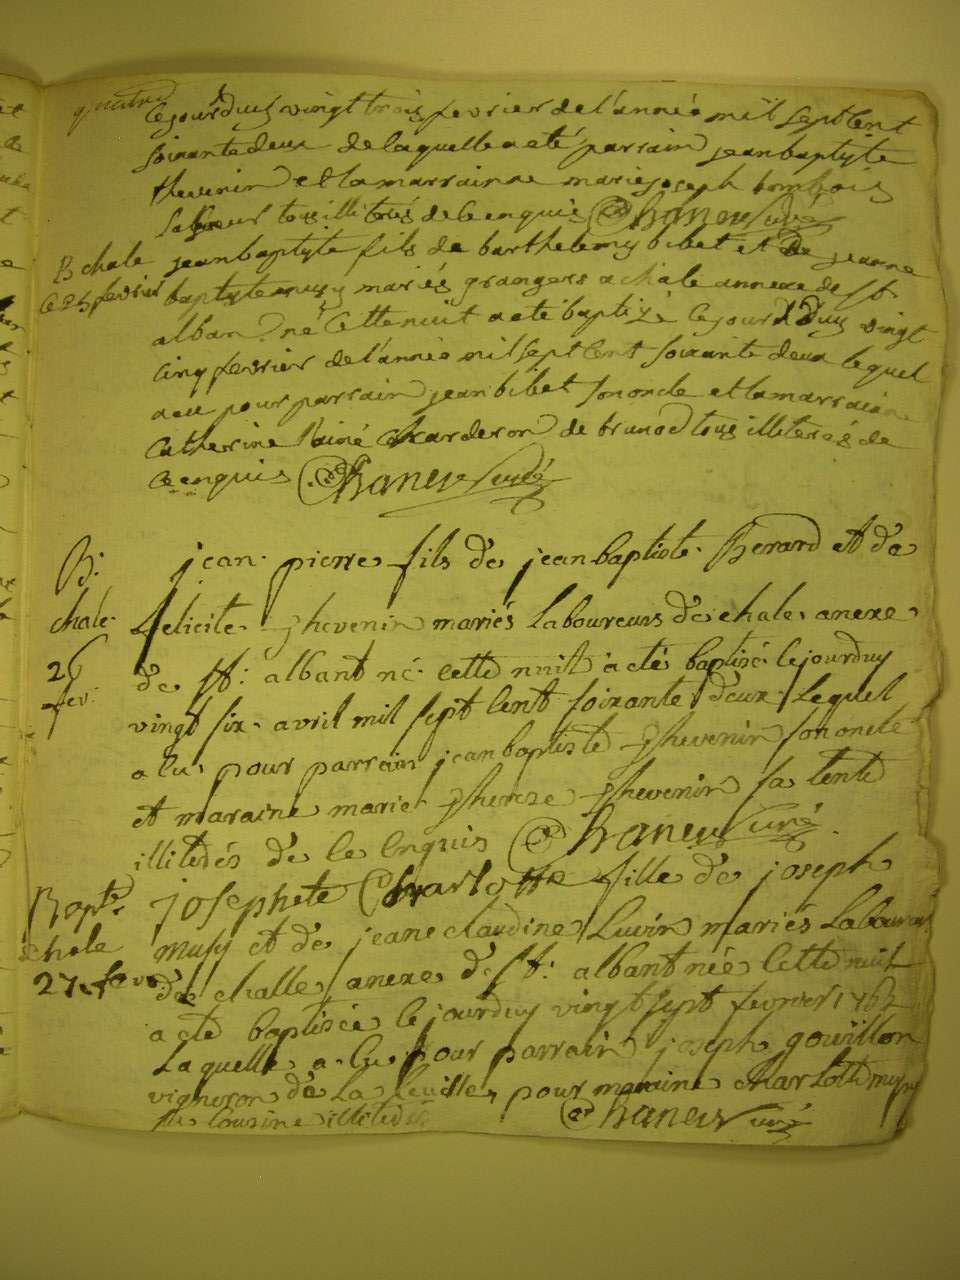 quatre
cejourduy vingt trois fevrier de l'année mil sept cent
soixante deux de laquelle a eté parrain jean baptyte
thevenin et la marrainne marie joseph
tous illitrés de ce enquis Chanew curé
B chale jean baptyte fils de barthelemy bibet et de jeanne
ce 25 fevrier baptyte musy mariés grangers a chale annexe de st
alban né cette nuit a eté baptizé cejourdduy vingt
cinq fevrier de l'année mil sept cent soixante deux lequel
a eu pour parrain jean bibet son oncle et la marraine
catherine de brunod tous illiterés de
ce enquis Chanew curé
B: jean pierre fils de jean baptiste Berard et de
chale felicite thevenin mariés Laboureurs de chale anexe
26 de st: albant né cette nuit a eté baptisé lejourduy
fev: vingt six avril mil sept cent soixante deux Lequel
a eu pour parrain jean baptiste thevenin son oncle
et maraine marie therese thevenin sa tente
illitedés de ce enquis Chanew curé
Bapt josephete Charlotte fille de joseph
chale musy et de jeane claudine Luvin mariés Laboureurs
27 fevr de challe anexe de st: albant née cette nuit
a eté baptisée lejourduy vingt sept fevrier 1762
Laquelle a eu pour parrain joseph gouillon
vigneron de La pour maraine charlotte musy
sa cousine illitedés Chanew curé